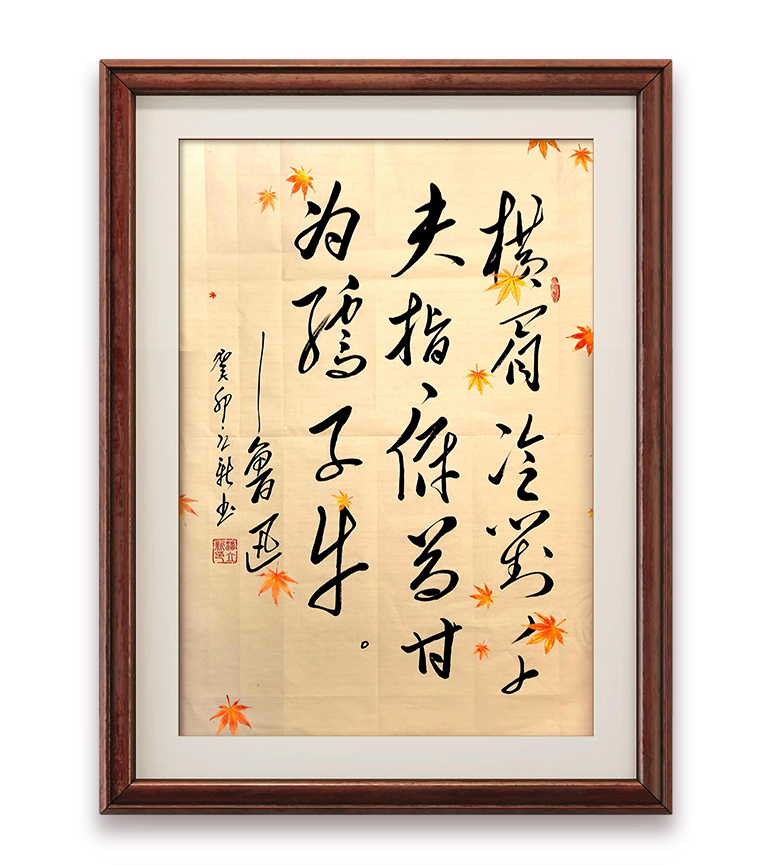 横眉冷對千
夫指、俯首甘
为孺子牛。
—鲁迅
癸卯立新书